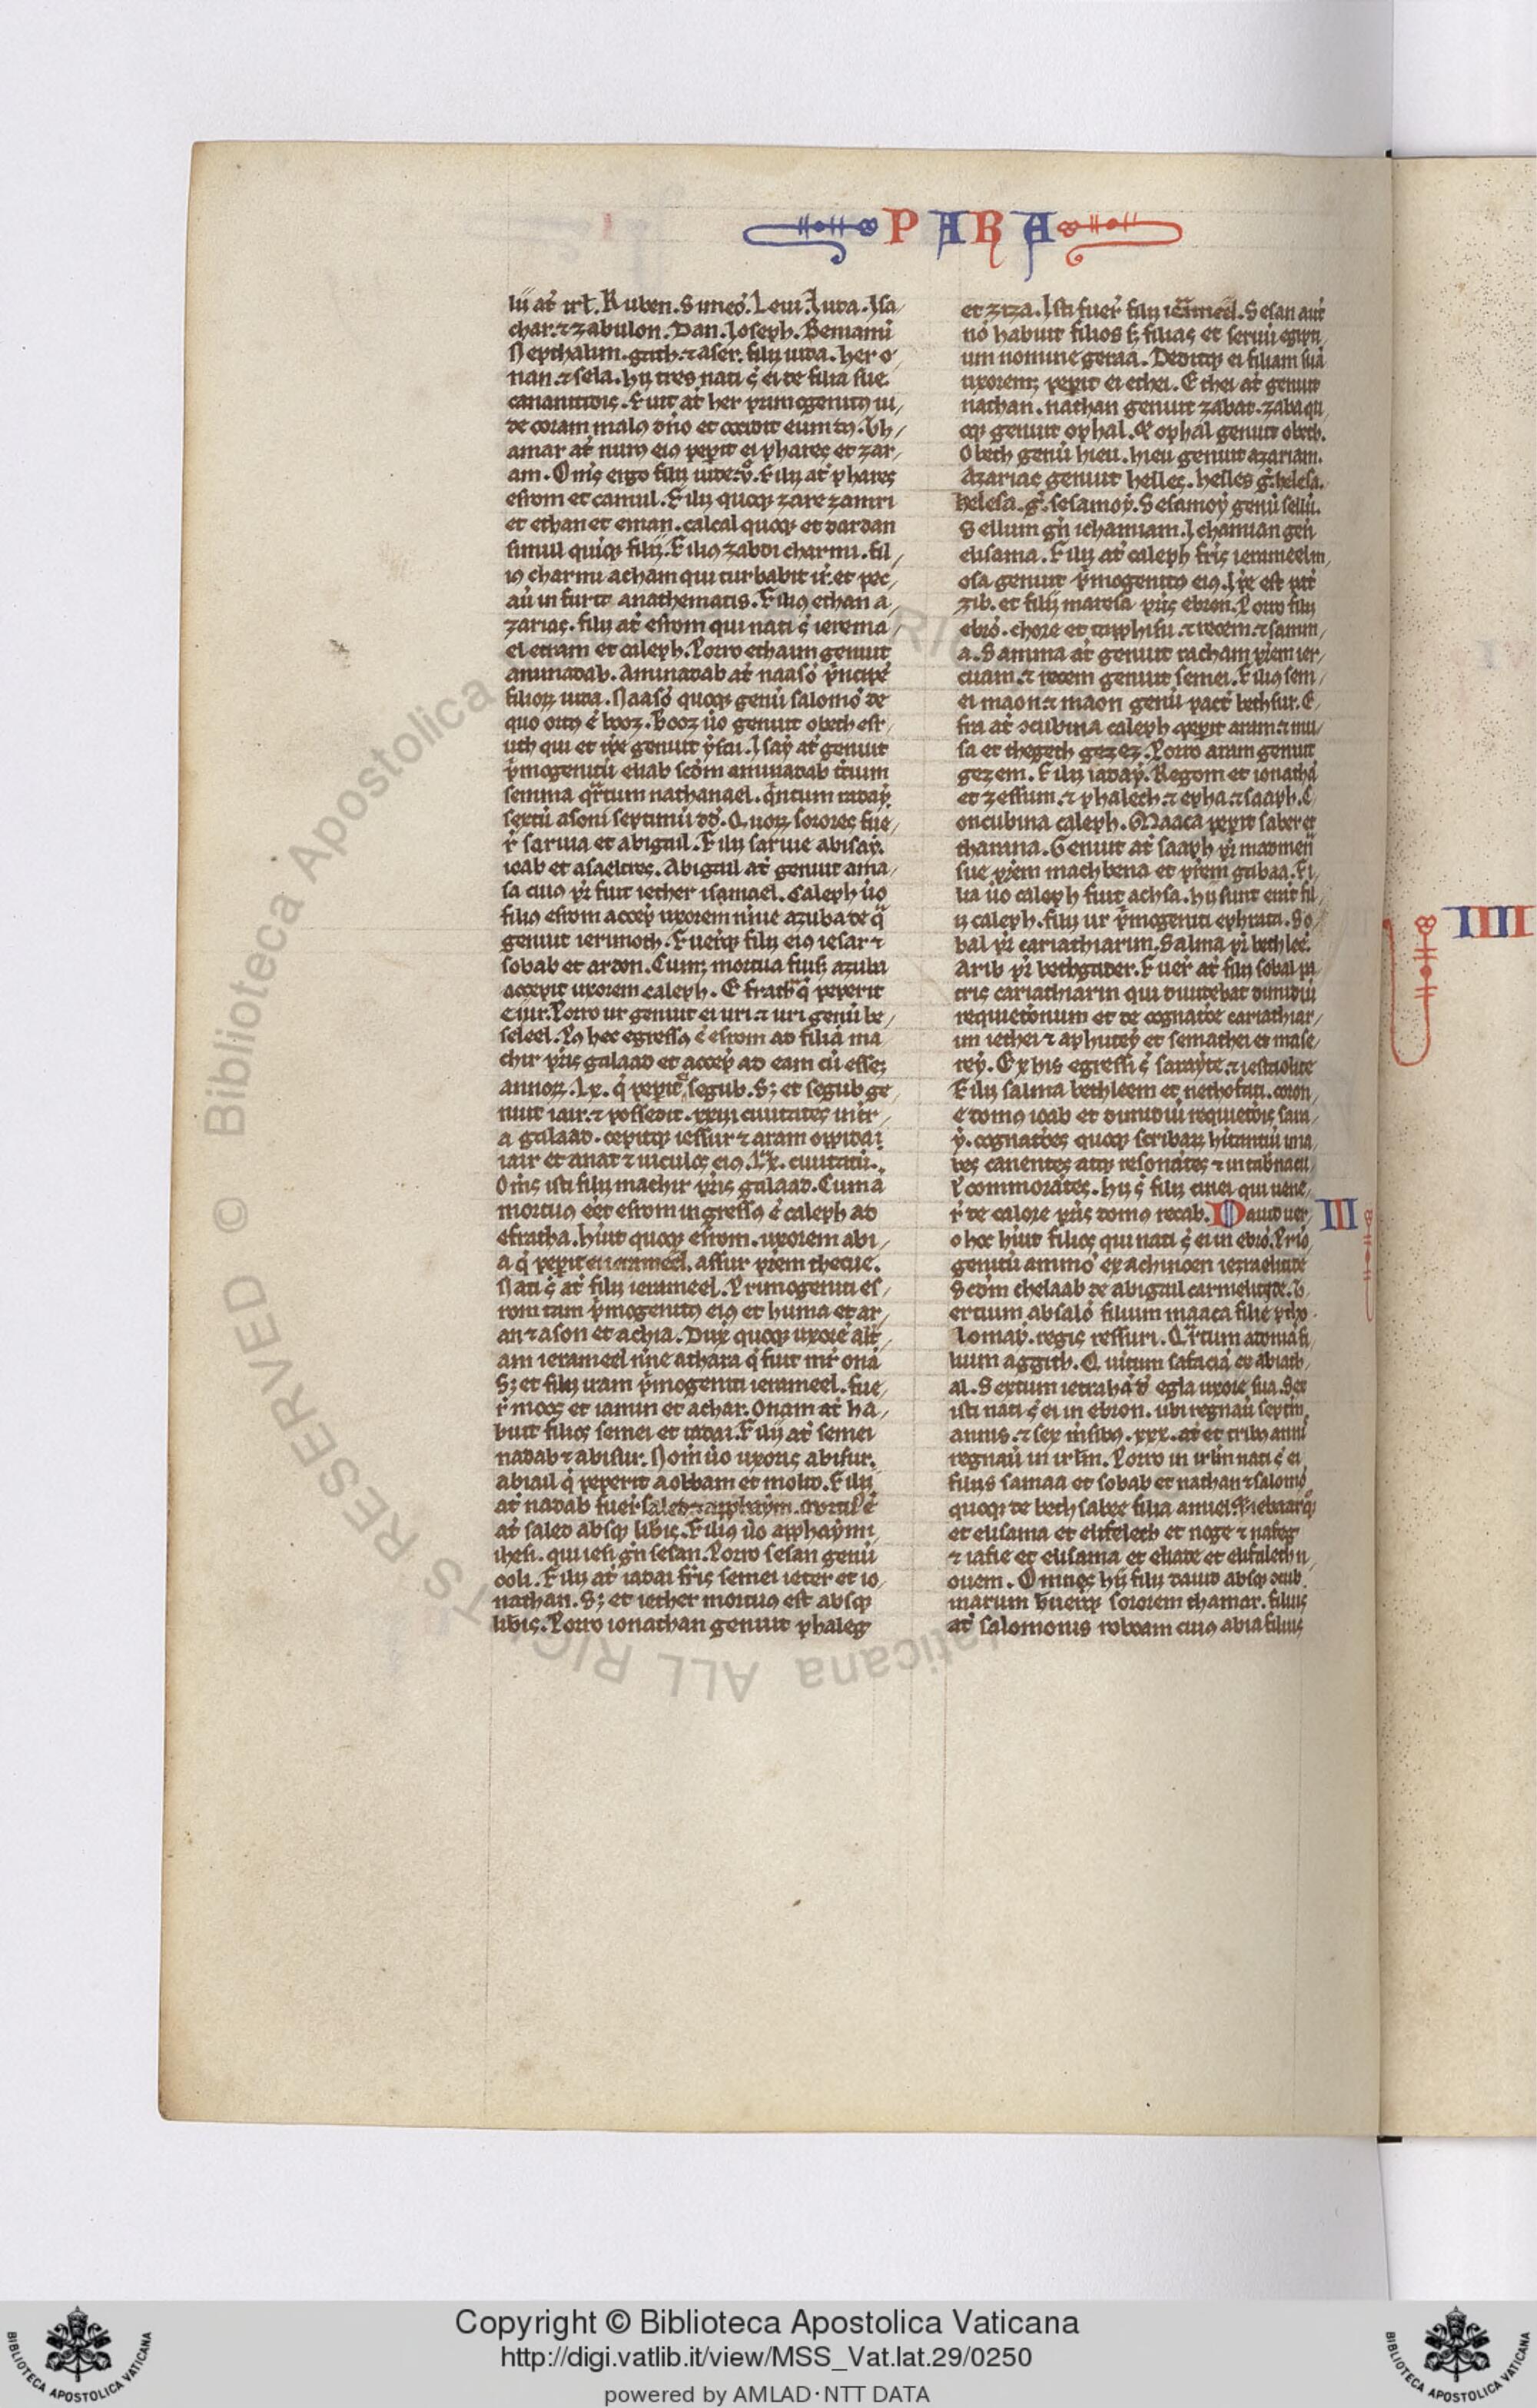 PARA
lii at̄ isrl̄. Ruben. Simeō. Leui. Iuda. Isa/
char. ⁊ zabulon. Dan. Ioseph. Beniami
Nepthalim. gath. ⁊ aser. filij iuda. her o/
nan. ⁊ sela. hij tres nati s̄ ei de filia sue
cananitidis. Fuit at̄ her primogenitꝰ iu/
de coram malꝰ dn̄o et occidit eum
amar at̄ nurꝰ eiꝰ peperit ei phares et zar/
am. Om̄s ergo filij iude. v̊. Filij at̄ phares
esrom et camul. Filij quoqꝫ zare zamri
et ethan et eman. calcal quoqꝫ et dardan
simul quiqꝫ filij. Filiꝰ zabdi charmi. fil/
iꝰ charmi acham qui turbabit isr̄. et pec/
auit in furto anathematis. Filiꝰ ethan a/
zarias. filij at̄ esrom qui nati s̄ ierema/
el et ram et caleph. Porro et haun genuit
aminadab. Aminadab at̄ naasō p̄ncipē
filioꝝ iuda. Naasō quoqꝫ genū salomō de
quo ortꝰ ē booz. Booz ūo genuit obeth
uth qui et ip̄e genuit ysai. Isay at̄ genuit
p̄mogenitū eliab scd̄m aminadab t̄cium
semma qr̄tum nathanael. q̄ntum radaȳ
sextū asom septimū dd̄. Quoꝝ sorores fue/
r̄ saruia et abigail. Filij saruie abisaȳ.
ioab et asael tres. Abigail at̄ genuit ama/
sa cuiꝰ pr̄ fuit iether ismael. Caleph ūo
filiꝰ esrom accep̄ uxorem nn̄e azuba de q̄
genuit ierimoth. Fuerūtqꝫ filij eiꝰ iesar ⁊
sobab et ardon. Cumqꝫ mortua fuisꝫ azuba
accepit uxorem caleph. Efrath q̄ peperit
ei ur. Porro ur genuit ei uri. ⁊ uri genū be/
seleel. Pꝰ hec egressꝰ ē esrom ad filiā ma
chir pr̄is galaad et accep̄ ad eam cū essꝫ
annoꝝ. lx. q̄ peperit segub. Sꝫ et segub ge/
nuit iair. ⁊ possedit. xxiij ciuitates in tr̄/
a galaad. cepitqꝫ iessur ⁊ aram oppida
iair et anat ⁊ uiculos eiꝰ. lx. ciuitatū.
Om̄s isti filij machir pr̄is galaad. Cum ā
mortuꝰ eēt esrom ingressꝰ ē caleph ad
efratha. Hūit quoqꝫ esrom. uxorem abi/
a q̄ peperit ei ierameel. assur pr̄em thecue.
Nati s̄ at̄ filij ierameel. Primogeniti es/
rom ram p̄mogenitꝰ eiꝰ et buma et ar/
an ⁊ ason et achia. Dux quoqꝫ uxorē alt̄/
am ierameel nn̄e athara q̄ fuit mr̄ onā
Sꝫ et filij ram p̄mogeniti ierameel. fue/
r̄ moos et iamin et achar. Onam at̄ ha/
buit filios semei et iadai. Filij at̄ semei
nadab ⁊ abisur. Nom̄ ūo uxoris abisur.
abiail q̄ peperit aobbam et molid. Filij
at̄ nadab fuer̄ saled ⁊ apphaym. mortuꝰ ē
at̄ saled absqꝫ lib̄is. Filiꝰ ūo apphaym
ihesi. qui iesi gn̄ sesan. Porro sesan genū
ooli. Filij at̄ iadai fr̄is semei ieter et io/
nathan. Sꝫ et iether mortuꝰ est absqꝫ
lib̄is. Porro ionathan genuit phaleg
et ziza. Isti fuer̄ filij ierameel. Sesan aut̄
nō habuit filios sꝫ filias et seruū egipti/
um nomine geraa. Deditqꝫ ei filiam suā
uxorem; peperit ei ethei. Ethei at̄ genuit
nathan. nathan genuit zabat. zaba
genuit ophal. ophal genuit obeth.
Obeth genū hieu. hieu genuit azariam.
Azarias genuit helles. helles g̊. helesa.
helesa. g̊. sesamoy. Sesamoy genū sellū.
Sellum gn̄ ichamiam. Ichamian gen̄
elisama. Filij at̄ caleph fr̄is ierameel m/
osa genuit p̄mogenitꝰ eiꝰ. Ip̄e est pat̄
zib. et filij maresa pr̄is ebron. Porro filij
ebrō. chore et tapphisu. ⁊ recem. ⁊ samm/
a. Samma at̄ genuit racham pr̄em ier/
cuam. ⁊ recem genuit semei. Filiꝰ sem/
ei maon. ⁊ maon genū pat̄ bethsur. E/
fa at̄ ↄcubina caleph peperit aram. ⁊ mu/
sa et thegeth gezez. Porro aram genuit
gezem. Filij iadaȳ. Regom et ionathā
et zessum. ⁊ phalech. ⁊ epha. ⁊ saaph. C/
oncubina caleph. Maaca peperit saber et
thanna. Genuit at̄ saaph pr̄ madmen
sue pr̄em machbena et pr̄em gabaa. Fi/
lia ūo caleph fuit achsa. Hij sunt fil/
ij caleph. filij ur p̄mogeniti ephrata. So/
bal pr̄ cariathiarim. Salma pr̄ bethleē.
Arib pr̄ bethgader. Fuer̄ at̄ filij sobal pa/
tris cariathiarin qui diuidebat dimidiū
requietionum et de cognatōe cariathiar/
im iethei ⁊ aphutey et semathei et mase/
rey. Ex his egressi s̄ sarayte. ⁊ iestaolite
Filij salma bethleem et nethofati. coron/
e domꝰ ioab et dimidiū requietiōis sara/
ȳ. cognatōes quoqꝫ scribaꝝ hītantiū iaa/
bes canentes atqꝫ resonātes ⁊ in tab̄nacu/
l̄ commorātes. Hij s̄ filij cinei qui uene/
r̄ de calore pr̄is domꝰ recab. Dauid uer/
III
o hos hūit filios qui nati s̄ ei in ebrō. Prīo/
genitū ammō ex achinoen iezraelitide
Scd̄m chelaab de abigail carmelitide. T/
ertium absalō filium maaca filie ptho/
lomaȳ. regis ressuri. Qr̄tum adomā fi/
lium aggith. Quintum safaciā ex abiath/
al. Sextum ietrahā d̄ egla uxore sua. Sex
isti nati s̄ ei in ebron. ubi regnaū septim
annis. ⁊ sex mēsibꝰ. xxx. at̄ et tribꝰ anni
regnaū in irlm̄. Porro in irlm̄ nati s̄ ei
filiis samaa et sobab et nathan ⁊ salomō
quoqꝫ de bethsabee filia amiel.
et elisama et elifelech et noge ⁊ nafeg
⁊ iafie et elisama et eliade et elifalech n/
ouem. Omnes hij filij dauid absqꝫ ↄcub
inarum hūerūtqꝫ sororem thamar. filius
at̄ salomonis roboam cuiꝰ abia filius
IIII
© Biblioteca Apostolica Vaticana ALL RIGHTS RESERVED
Copyright © Biblioteca Apostolica Vaticana
http://digi.vatlib.it/view/MSS_Vat.lat.29/0250
powered by AMLAD·NTT DATA
BIBLIOTECA APOSTOLICA VATICANA
BIBLIOTECA APOSTOLICA VATICANA